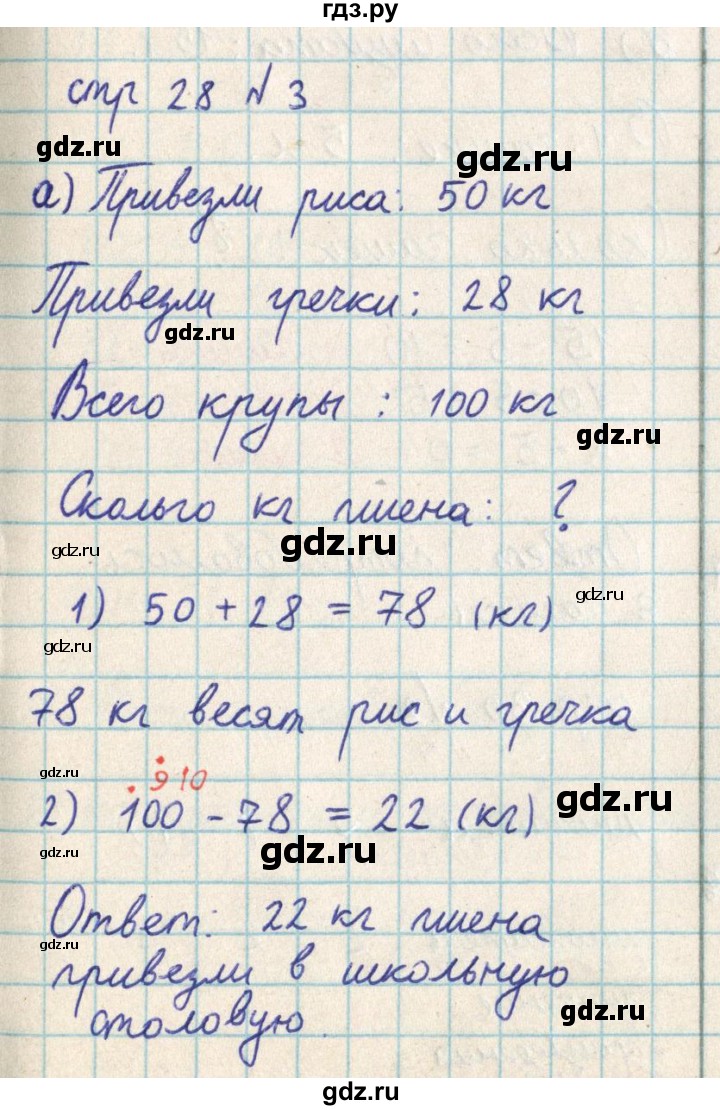 гдз.ру
стр 28 № 3
gdz.ru
gdz.ru
а) Привезли риса: 50 кг
Привезли гречки: 28 кг
gdz.ru
Всего крупы : 100 кг
gdz.ru
Сколько кг пшена: ?
gdz.ru
gdz.ru
1) 50 + 28 = 78 (кг)
gdz.ru
78 кг весят рис и гречка
gdz.ru
9 10
gdz.ru
2) 100 - 78 = 22 (кг)
gdz.ru
gdz.ru
Ответ: 22 кг пшена
gdz.ru
привезли в школьную
gdz.ru
столовую.
gdz.ru